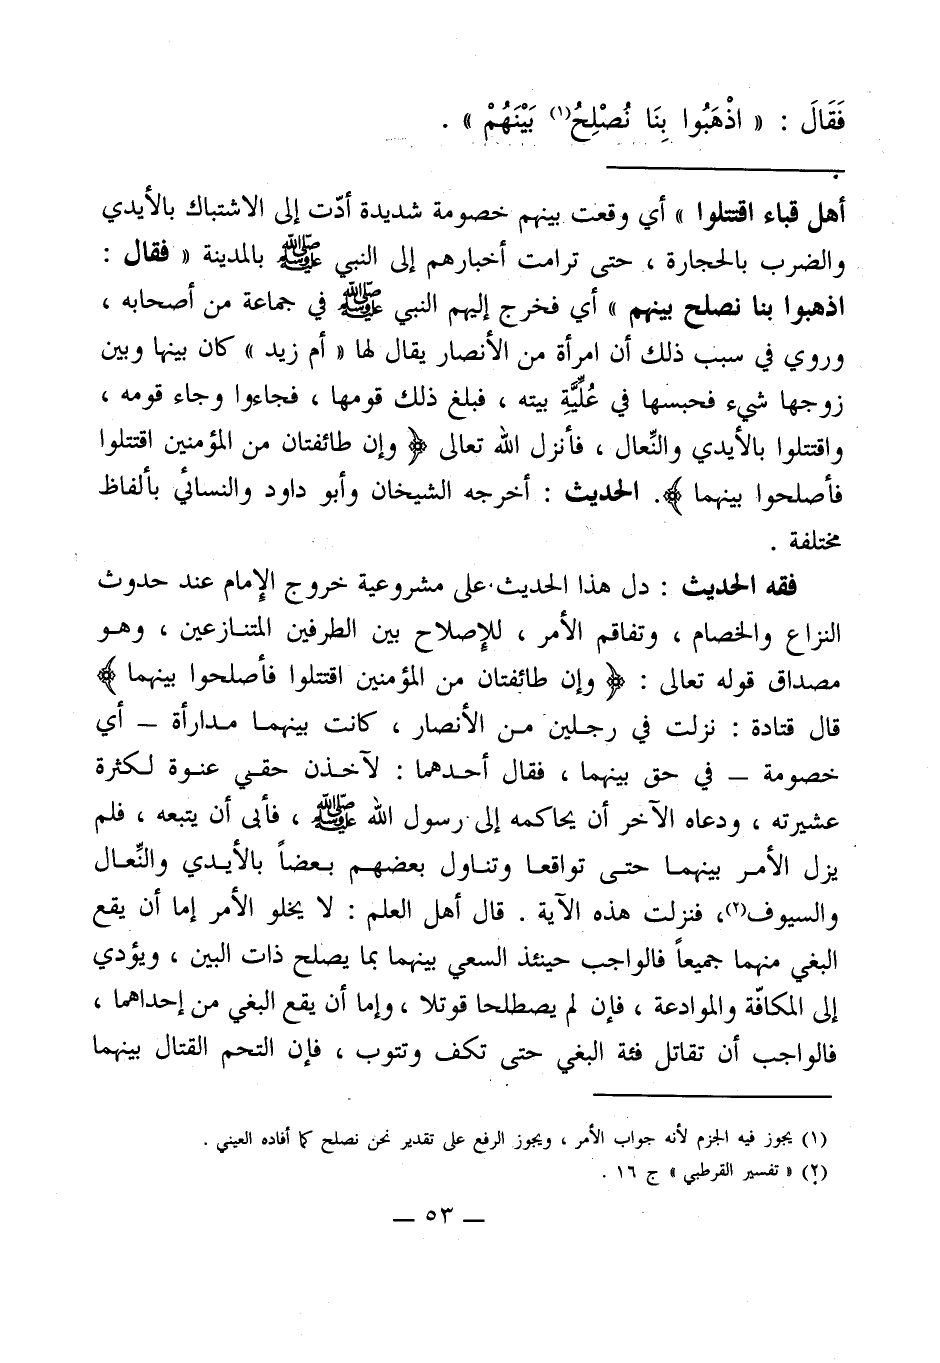 فَقَالَ : « اذْهَبُوا بِنَا نُصْلِحُ(١) بَيْنَهُمْ » .
أهل قباء اقتتلوا » أي وقعت بينهم خصومة شديدة أدّت إلى الاشتباك بالأيدي
والضرب بالحجارة ، حتى ترامت أخبارهم إلى النبي ﷺ بالمدينة « فقال :
اذهبوا بنا نصلح بينهم » أي فخرج إليهم النبي ﷺ في جماعة من أصحابه ،
وروي في سبب ذلك أن امرأة من الأنصار يقال لها « أم زيد » كان بينها وبين
زوجها شيء فحبسها في عُلِّيَّةِ بيته ، فبلغ ذلك قومها ، فجاءوا وجاء قومه ،
واقتتلوا بالأيدي والنِّعال ، فأنزل الله تعالى ﴿ وإن طائفتان من المؤمنين اقتتلوا
فأصلحوا بينهما ﴾. الحديث : أخرجه الشيخان وأبو داود والنسائي بألفاظ
مختلفة .
فقه الحديث : دل هذا الحديث على مشروعية خروج الإمام عند حدوث
النزاع والخصام ، وتفاقم الأمر ، للإصلاح بين الطرفين المتنازعين ، وهو
مصداق قوله تعالى : ﴿ وإن طائفتان من المؤمنين اقتتلوا فأصلحوا بينهما ﴾
قال قتادة : نزلت في رجلين من الأنصار ، كانت بينهما مدارأة – أي
خصومة – في حق بينهما ، فقال أحدهما : لآخذن حقي عنوة لكثرة
عشيرته ، ودعاه الآخر أن يحاكمه إلى رسول الله ﷺ ، فأبى أن يتبعه ، فلم
يزل الأمر بينهما حتى تواقعا وتناول بعضهم بعضاً بالأيدي والنِّعال
والسيوف(٢)، فنزلت هذه الآية . قال أهل العلم : لا يخلو الأمر إما أن يقع
البغي منهما جميعاً فالواجب حينئذ السعي بينهما بما يصلح ذات البين ، ويؤدي
إلى المكافّة والموادعة ، فإن لم يصطلحا قوتلا ، وإما أن يقع البغي من إحداهما ،
فالواجب أن تقاتل فئة البغي حتى تكف وتتوب ، فإن التحم القتال بينهما
(١) يجوز فيه الجزم لأنه جواب الأمر ، ويجوز الرفع على تقدير نحن نصلح كما أفاده العيني .
(٢) « تفسير القرطبي » ج ١٦ .
– ٥٣ –